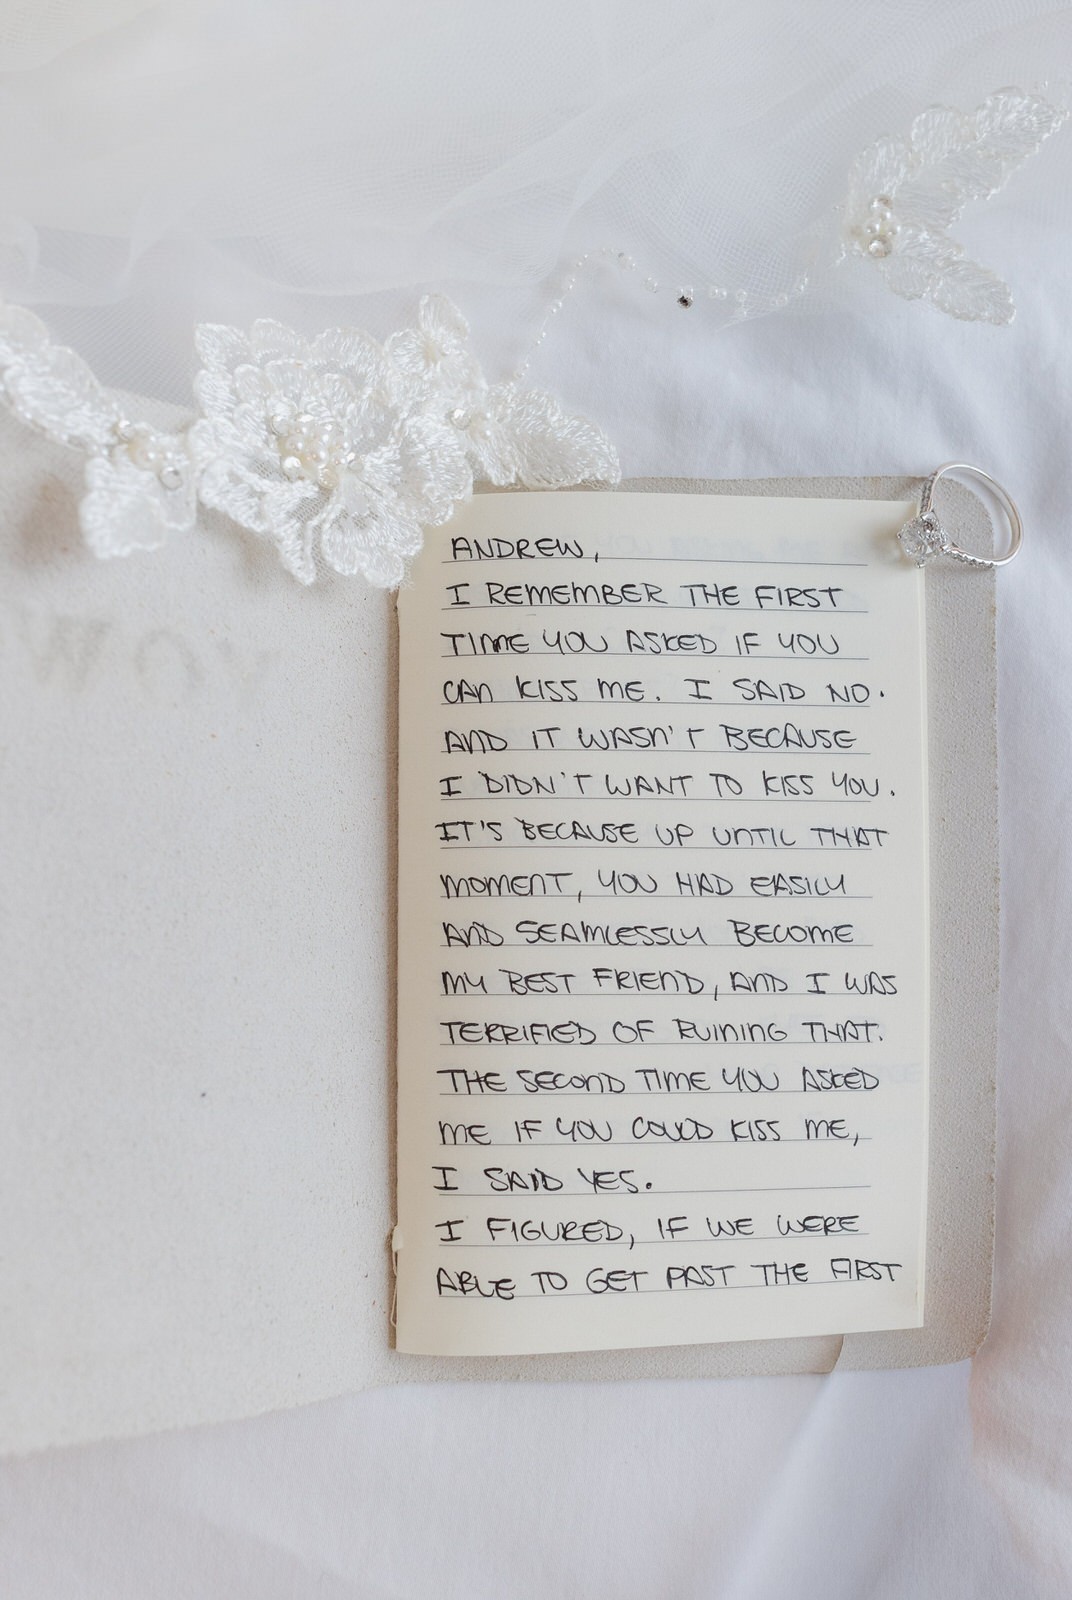 ANDREW,
I REMEMBER THE FIRST
TIME YOU ASKED IF YOU
CAN KISS ME. I SAID NO.
AND IT WASN'T BECAUSE
I DIDN'T WANT TO KISS YOU.
IT'S BECAUSE UP UNTIL THAT
MOMENT, YOU HAD EASILY
AND SEAMLESSLY BECOME
MY BEST FRIEND, AND I WAS
TERRIFIED OF RUINING THAT.
THE SECOND TIME YOU ASKED
ME IF YOU COULD KISS ME,
I SAID YES.
I FIGURED, IF WE WERE
ABLE TO GET PAST THE FIRST